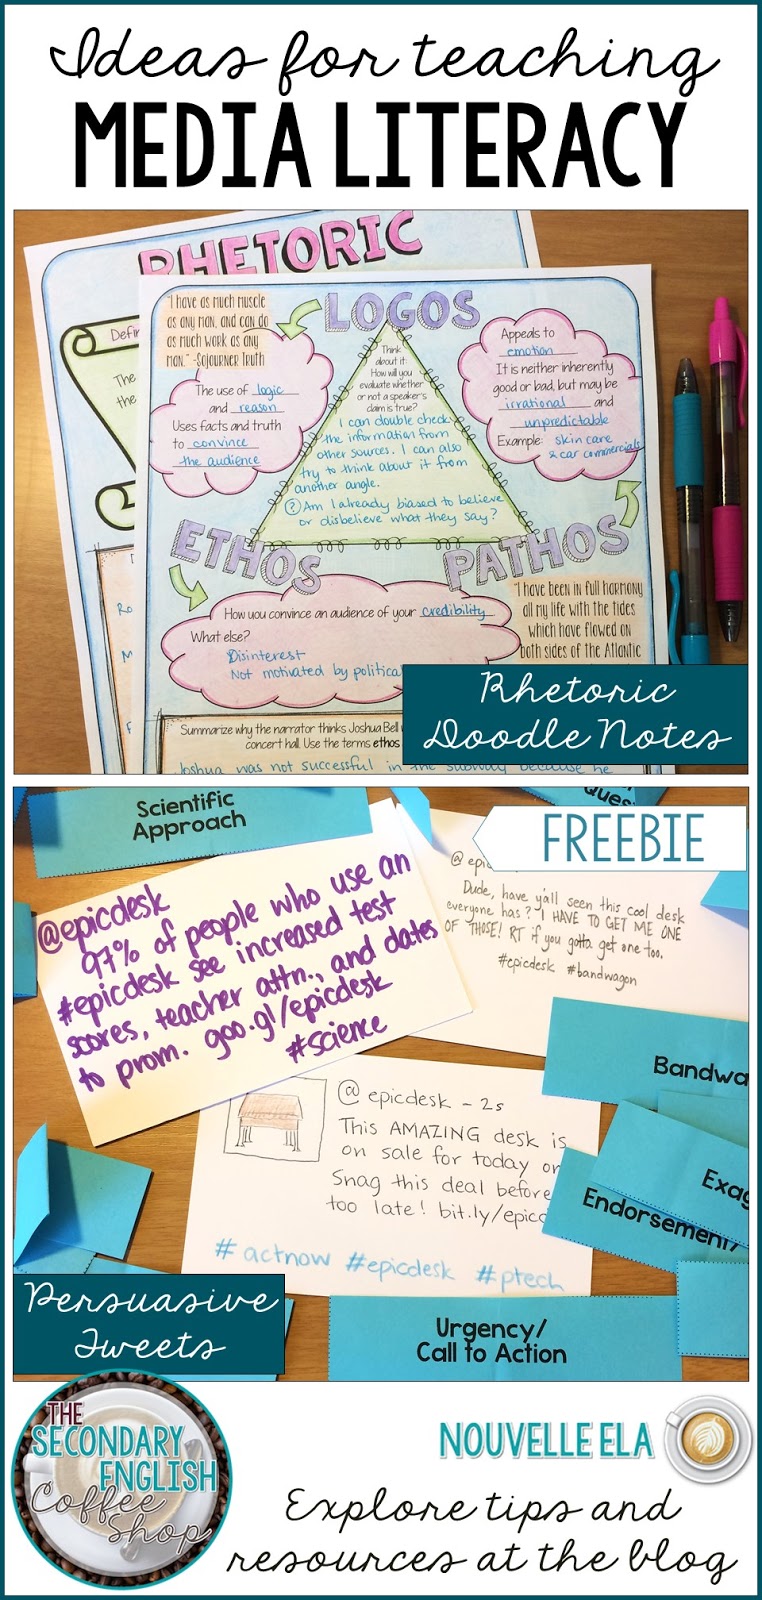 Ideas for teaching
MEDIA LITERACY
RHETORIC
Defin
The
the
"I have as much muscle
as any man, and can do
as much work as any
man." -Sojourner Truth
LOGOS
The use of logic
and reason
Uses facts and truth
to convince
the audience
Think
about it:
How will you
evaluate whether
or not a speaker's
claim is true?
I can double check
the information from
other sources. I can also
try to think about it from
another angle.
? Am I already biased to believe
or disbelieve what they say?
Appeals to
emotion
It is neither inherently
good or bad, but may be
irrational and
unpredictable
Example: skin care
& car commercials
ETHOS
PATHOS
How you convince an audience of your credibility
What else?
Disinterest
Not motivated by political
"I have been in full harmony
all my life with the tides
which have flowed on
both sides of the Atlantic
Summarize why the narrator thinks Joshua Bell
concert hall. Use the terms ethos
Joshua was not successful in the subway because he
Rhetoric
Doodle Notes
Scientific
Approach
Ques
FREEBIE
@epicdesk
97% of people who use an
#epicdesk see increased test
scores, teacher attn., and dates
to prom. goo.gl/epicdesk
#science
@epic
Dude, have y'all seen this cool desk
everyone has? I HAVE TO GET ME ONE
OF THOSE! RT if you gotta get one too.
#epicdesk #bandwagon
Bandwa
@epicdesk - 2s
This AMAZING desk is
on sale for today on
Snag this deal before
too late! bit.ly/epicd
#actnow #epicdesk #ptech
Exag
Endorsement/
Urgency/
Call to Action
Persuasive
Tweets
THE
SECONDARY
ENGLISH
Coffee
Shop
NOUVELLE ELA
Explore tips and
resources at the blog